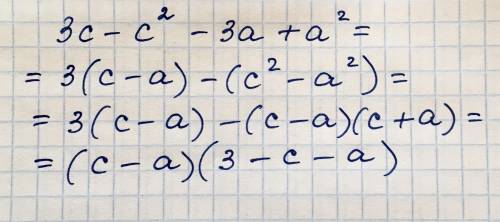 3c - c² - 3a + a² =
= 3(c - a) - (c² - a²) =
= 3(c - a) - (c - a)(c + a) =
= (c - a)(3 - c - a)